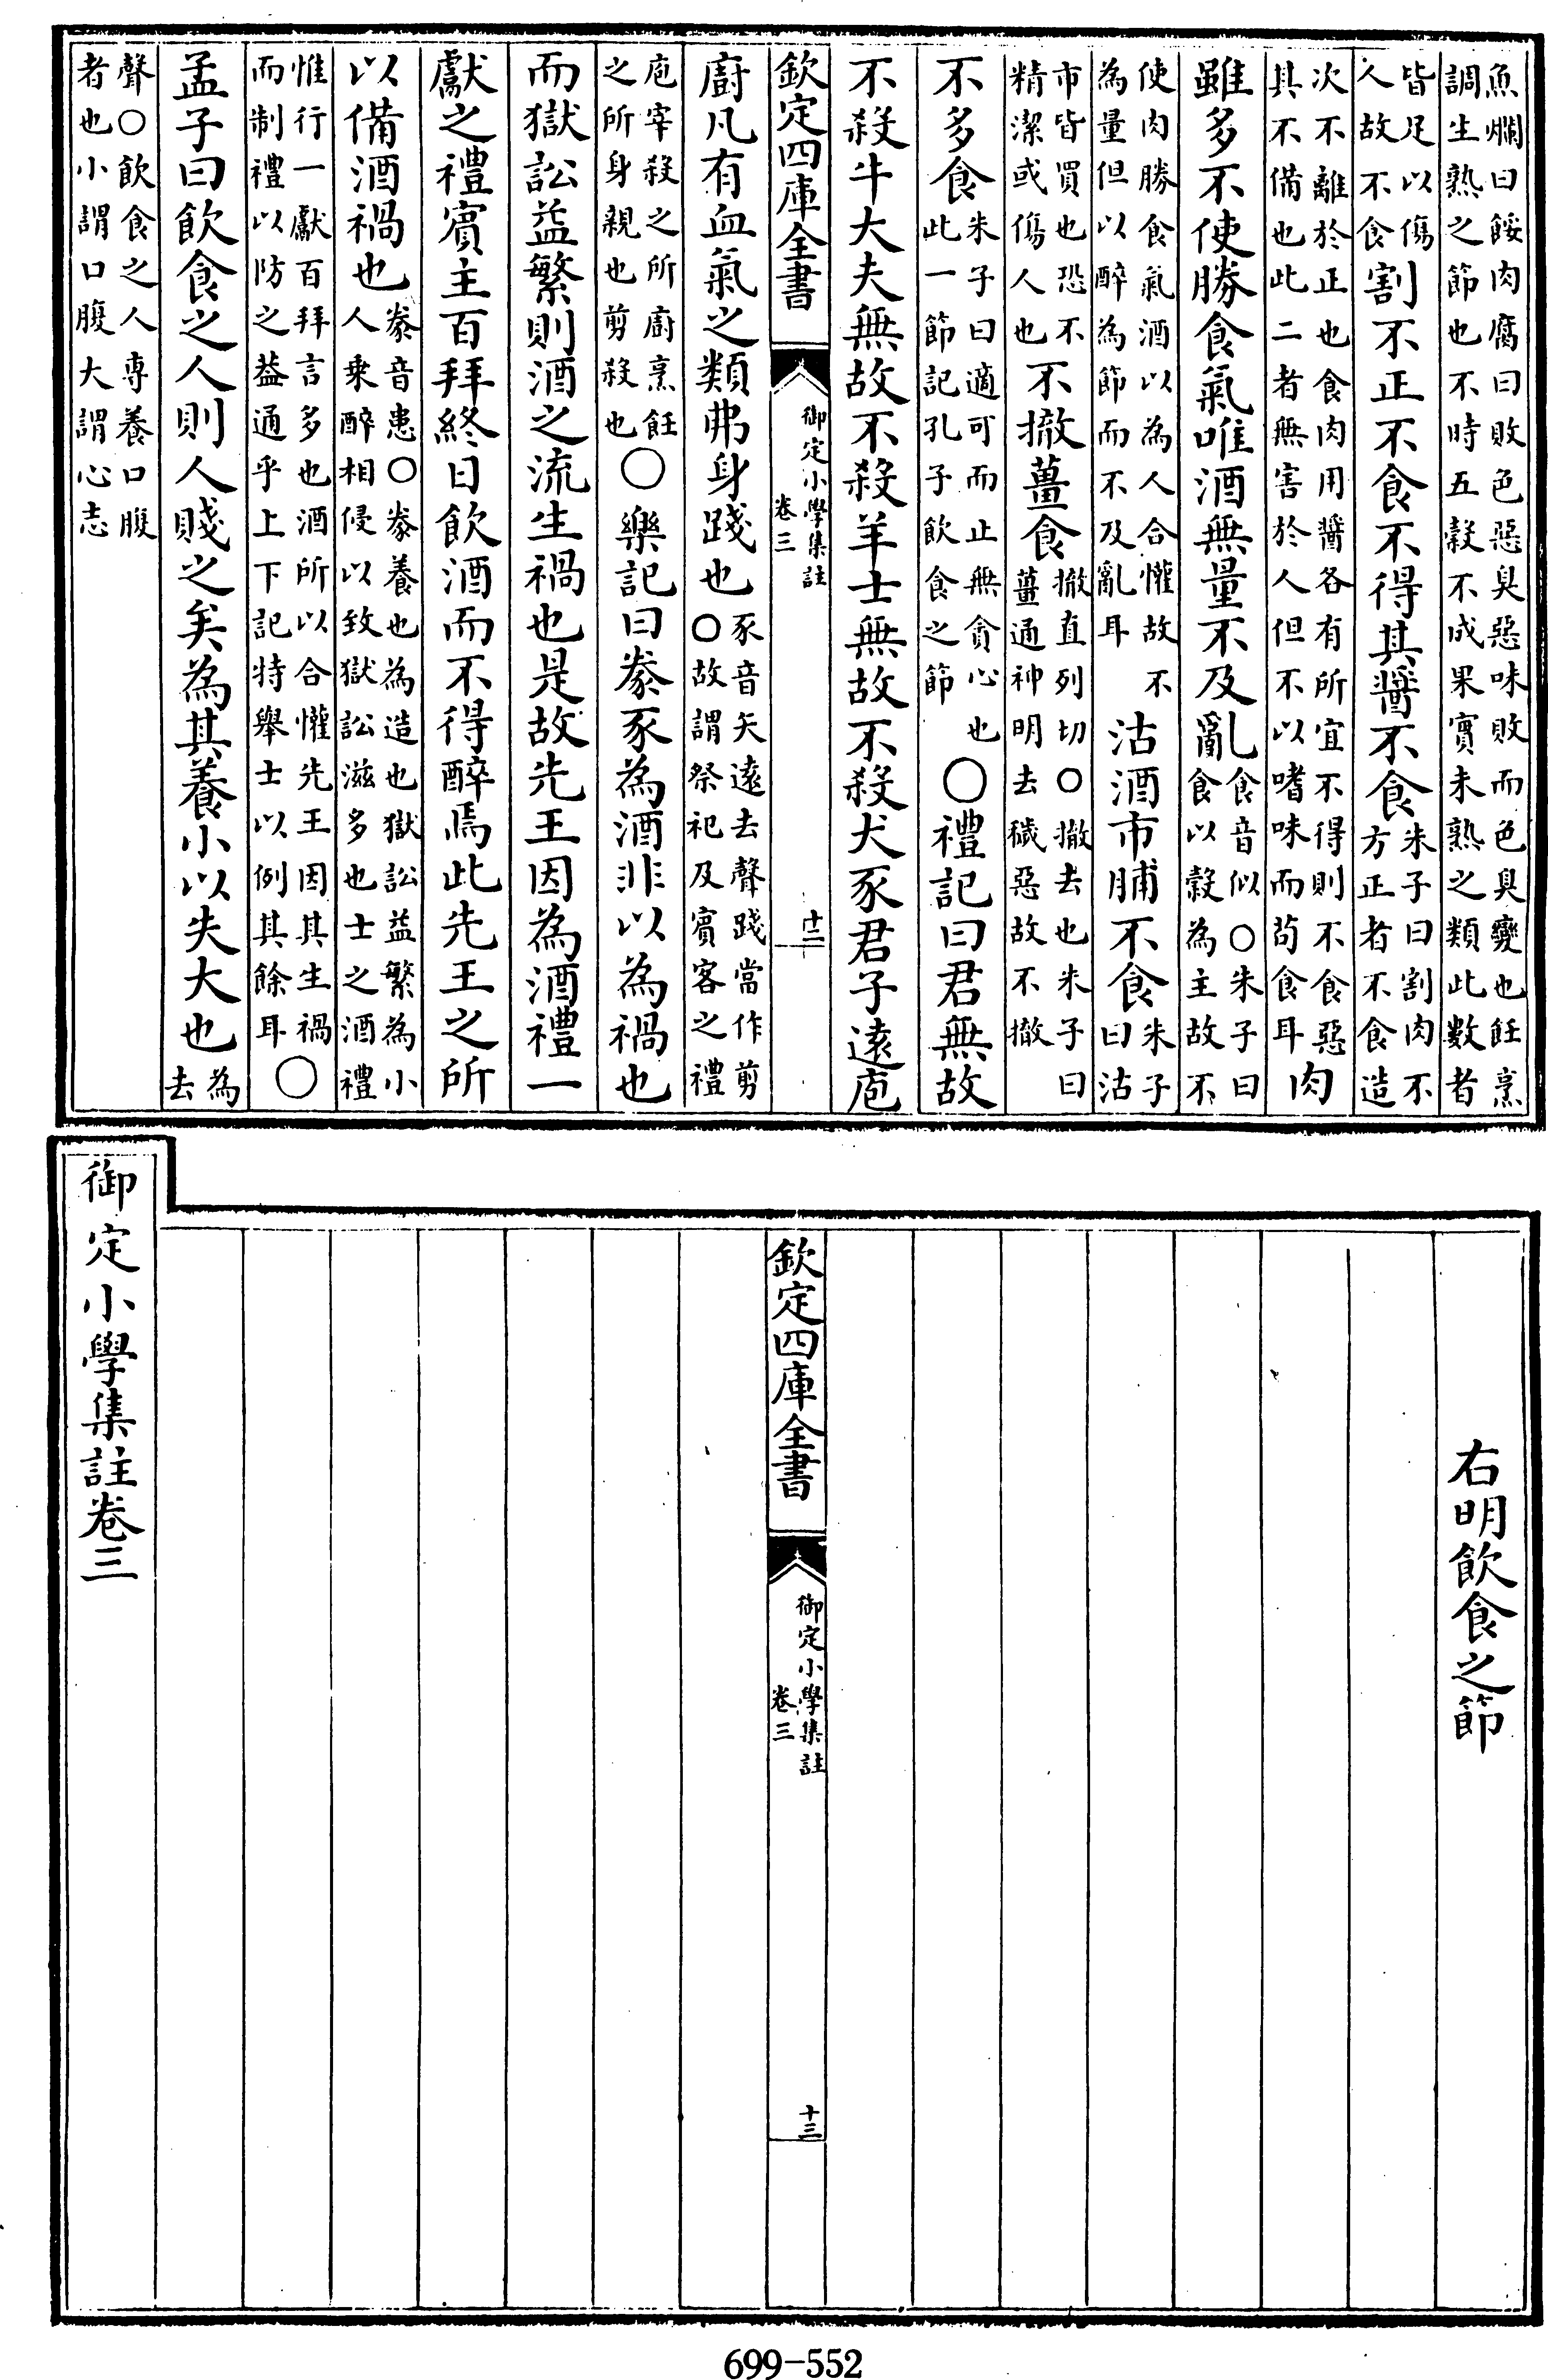 魚爛曰餒肉腐曰敗色惡臭惡味敗而色臭變也飪烹
調生熟之節也不時五穀不成果實未熟之類此數者
皆足以傷
人故不食
割不正不食不得其醬不食
朱子曰割肉不
方正者不食造
次不離於正也食肉用醬各有所宜不得則不食惡
其不備也此二者無害於人但不以嗜味而苟食耳
肉
雖多不使勝食氣唯酒無量不及亂
食音似〇朱子曰
食以穀為主故不
使肉勝食氣酒以為人合懽故不
為量但以醉為節而不及亂耳
沽酒市脯不食
朱子
曰沽
市皆買也恐不
精潔或傷人也
不撤薑食
撤直列切〇撤去也朱子曰
薑通神明去穢惡故不撤
不多食
朱子曰適可而止無貪心也
此一節記孔子飲食之節
〇禮記曰君無故
不殺牛大夫無故不殺羊士無故不殺犬豕君子遠庖
欽定四庫全書
御定小學集註
卷三
十二
廚凡有血氣之類弗身踐也
豕音矢遠去聲踐當作剪
〇故謂祭祀及賓客之禮
庖宰殺之所廚烹飪
之所身親也剪殺也
〇樂記曰豢豕為酒非以為禍也
而獄訟益繁則酒之流生禍也是故先王因為酒禮一
獻之禮賓主百拜終日飲酒而不得醉焉此先王之所
以備酒禍也
豢音患〇豢養也為造也獄訟益繁為小
人乘醉相侵以致獄訟滋多也士之酒禮
惟行一獻百拜言多也酒所以合懽先王因其生禍
而制禮以防之葢通乎上下記特舉士以例其餘耳
〇
孟子曰飲食之人則人賤之矣為其養小以失大也
為
去
聲〇飲食之人專養口腹
者也小謂口腹大謂心志
右明飲食之節
欽定四庫全書
御定小學集註
卷三
十三
御定小學集註卷三
699-552